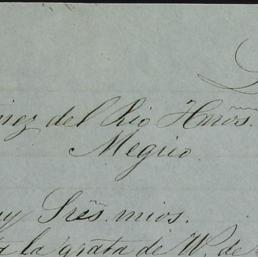 del Rio Hnos.
Megico.
Sres. mios.
la grata de W. de